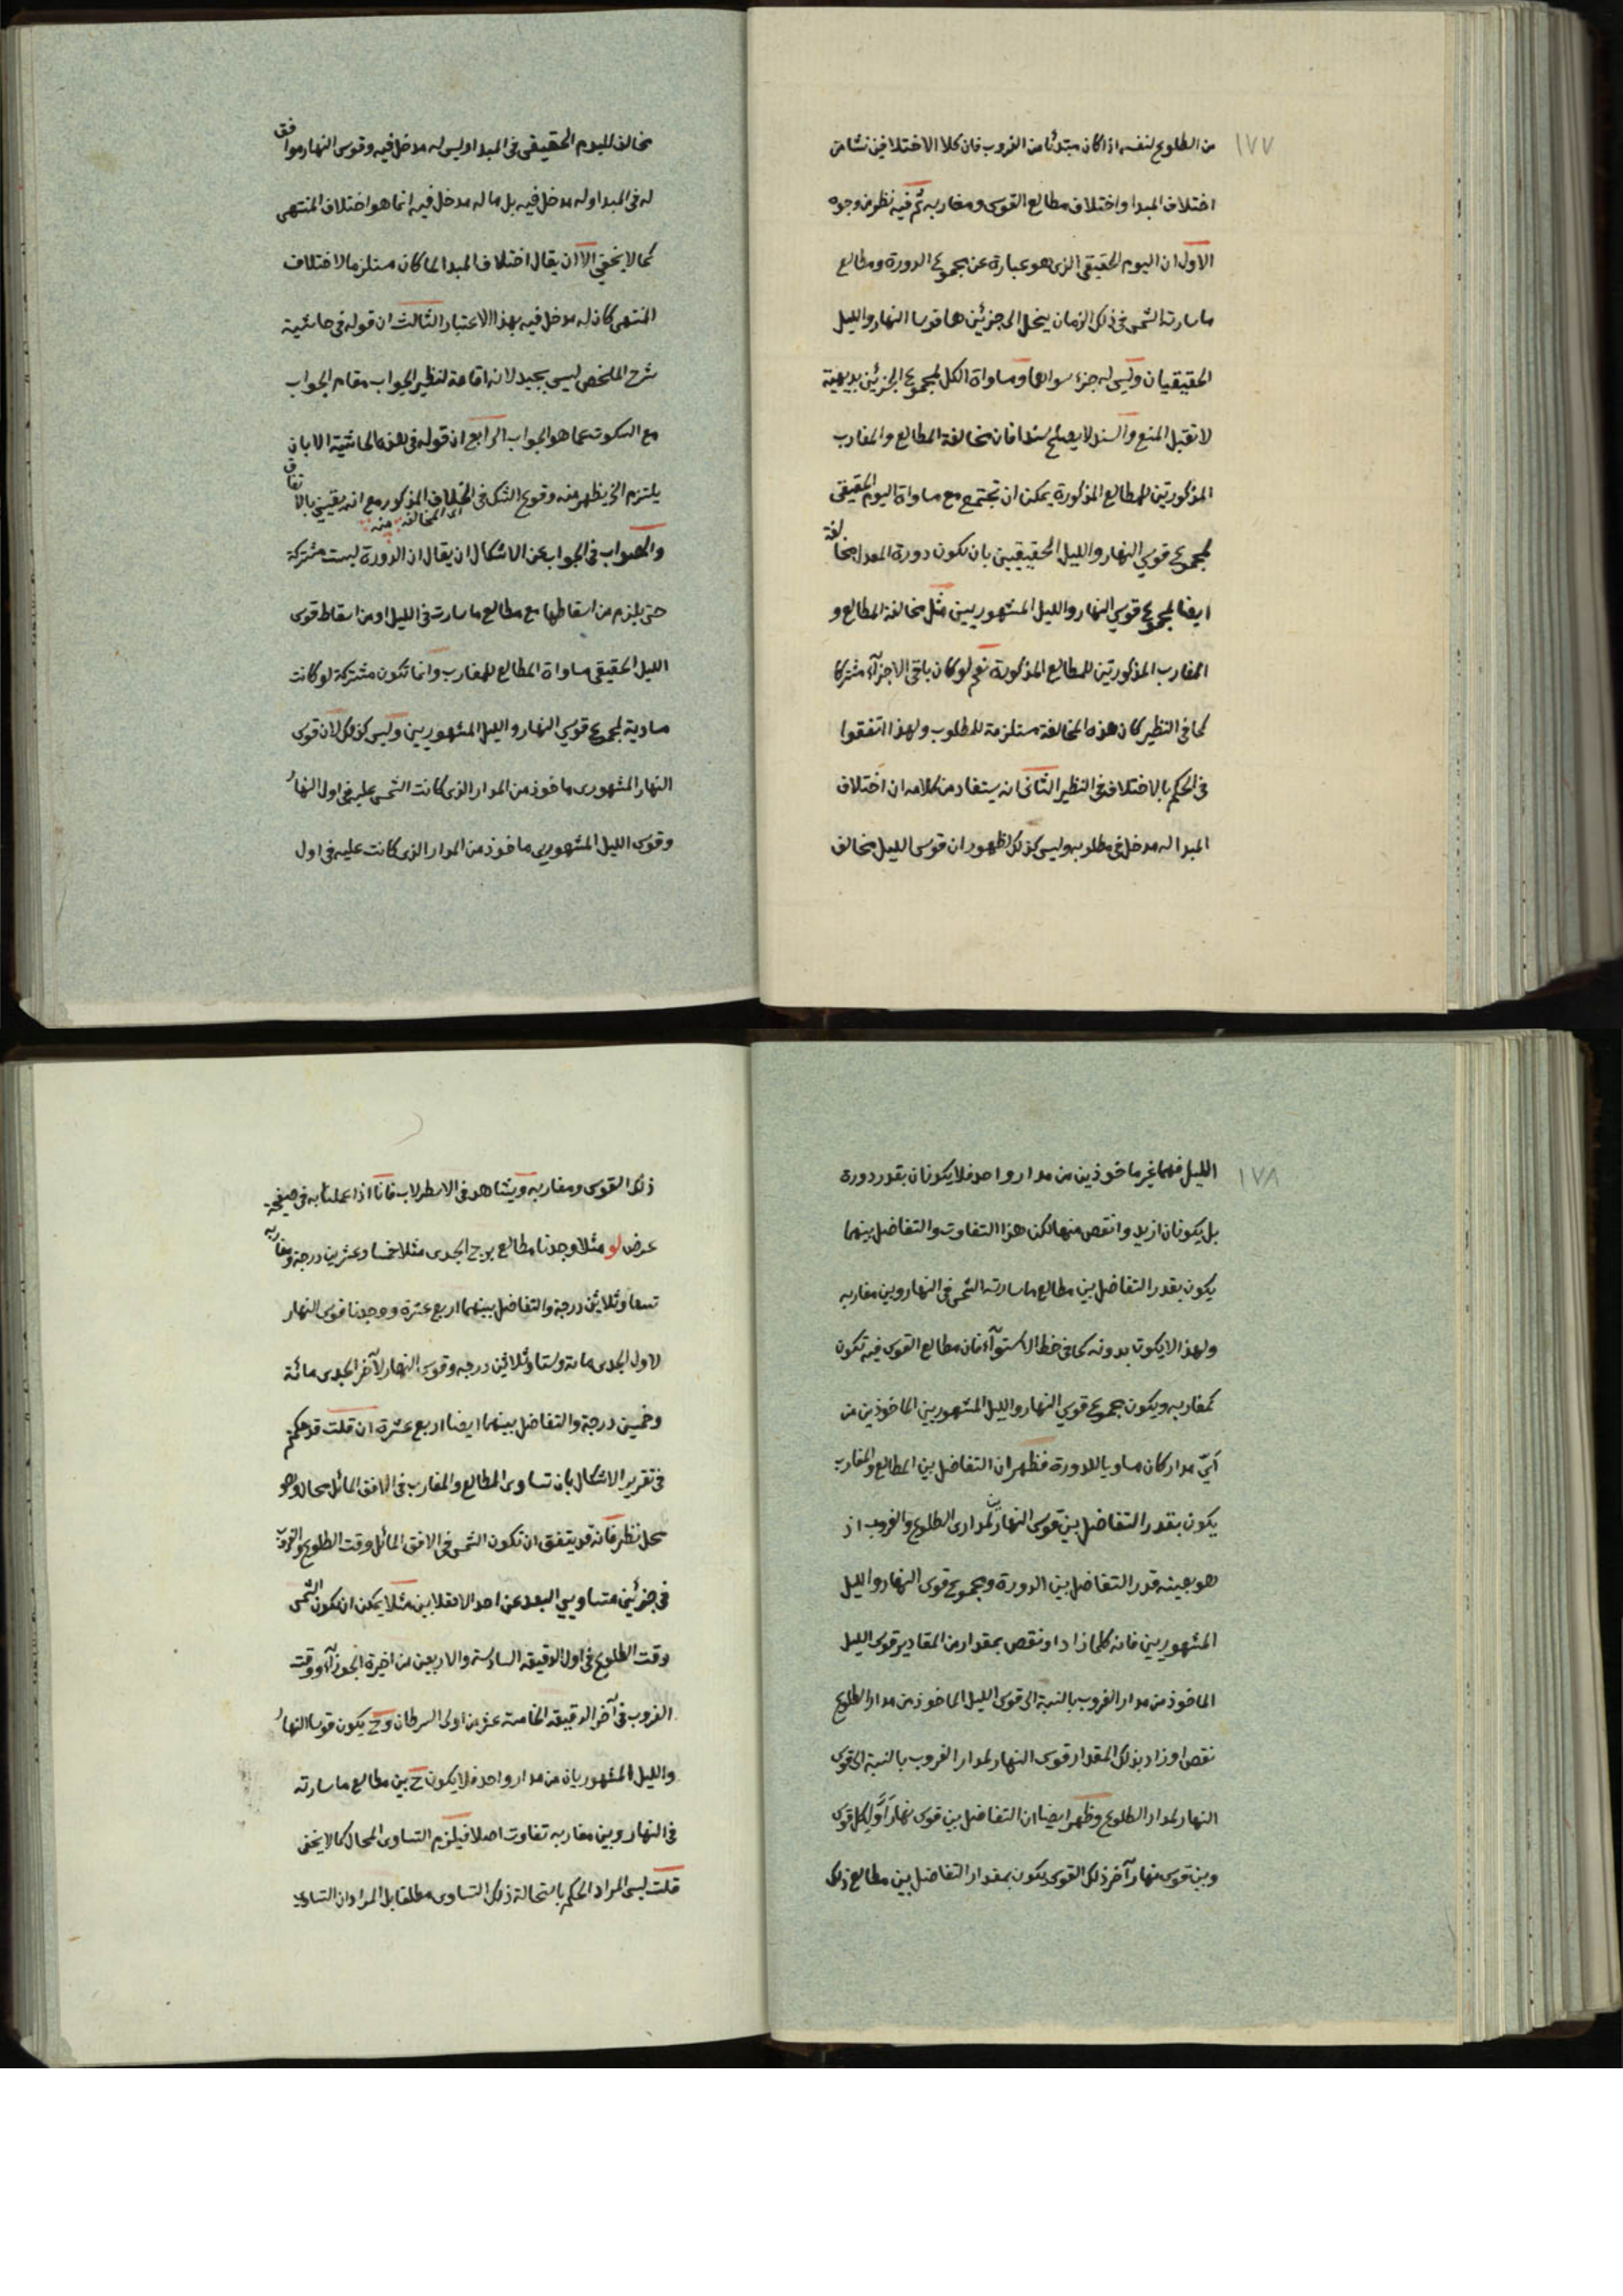 ١٧٧
من الطلوع لنفسه اذا كان مبتدئا من الغروب فان كلا الاختلافين نشا من
اختلاف المبدا واختلاف مطالع القوس ومغاربه ثم فيه نظر من وجوه
الاول ان اليوم الحقيقى الذى هو عبارة عن مجموع الدورة ومطالع
ما سارته الشمس فى ذلك الزمان ينحل الى جزئين هما قوسا النهار والليل
الحقيقيان وليس له جزء سواهما ومساواة الكل لمجموع الجزئين بديهية
لا تقبل المنع والسند لا يصلح سندا فان مخالفة المطالع والمغارب
المذكورتين للمطالع المذكورة يمكن ان تجتمع مع مساواة اليوم الحقيقى
لمجموع قوسي النهار والليل الحقيقيين بان يكون دورة المعدل مخالفة
ايضا لمجموع قوسي النهار والليل المشهوريين مثل مخالفة المطالع و
المغارب المذكورتين للمطالع المذكورة نعم لو كان باقى الاجزآء مشتركا
كما فى النظير كان هذه المخالفة مستلزمة للمطلوب ولهذا اتفقوا
فى الحكم بالاختلاف فى النظير الثانى انه يستفاد من كلامه ان اختلاف
المبدا له مدخل فى مطلوبه وليس كذلك لظهور ان قوس الليل مخالف
مخالف لليوم الحقيقى فى المبدا وليس له مدخل فيه وقوس النهار موافق
له فى المبدا وله مدخل فيه بل ما له مدخل فيه انما هو اختلاف المنتهى
كما لا يخفى الا ان يقال اختلاف المبدا لما كان مستلزما لاختلاف
المنتهى كان له مدخل فيه بهذا الاعتبار الثالث ان قوله فى حاشية
شرح الملخص ليس بجيد لانه اقامة لنظير الجواب مقام الجواب
مع السكوت عما هو الجواب الرابع ان قوله فى هذه الحاشية الا بان
يلتزم الخ يظهر منه وقوع الشك فى الخلاف المذكور مع انه يقينى بالاتفاق
اى المخالفة منه
والصواب فى الجواب عن الاشكال ان يقال ان الدورة ليست مشتركة
حتى يلزم من اسقاطها مع مطالع ما سارت فى الليل او من اسقاط قوس
الليل الحقيقى مساواة المطالع للمغارب وانما تكون مشتركة لو كانت
مساوية لمجموع قوسي النهار والليل المشهوريين وليس كذلك لان قوس
النهار المشهورى ماخوذ من المدار الذى كانت الشمس عليه فى اول النهار
وقوس الليل المشهورى ماخوذ من المدار الذى كانت عليه فى اول
١٧٨
الليل فهما غير ماخوذين من مدار واحد فلا يكونان بقدر دورة
بل يكونان ازيد وانقص منها لكن هذا التفاوت والتفاضل بينهما
يكون بقدر التفاضل بين مطالع ما سارته الشمس فى النهار وبين مغاربه
ولهذا لا يكون بدونه كما فى خط الاستوآء فان مطالع القوس فيه تكون
كمغاربه ويكون مجموع قوسي النهار والليل المشهوريين الماخوذين من
اىّ مدار كان مساويا للدورة فظهر ان التفاضل بين المطالع والمغارب
يكون بقدر التفاضل بين قوسى النهارين لمدارى الطلوع والغروب اذ
هو بعينه قدر التفاضل بين الدورة ومجموع قوس النهار والليل
المشهوريين فانه كلما زاد او نقص بمقدار من المقادير قوس الليل
الماخوذ من مدار الغروب بالنسبة الى قوس الليل الماخوذ من مدار الطلوع
نقص او زاد بذلك المقدار قوس النهار لمدار الغروب بالنسبة الى قوس
النهار لمدار الطلوع وظهر ايضا ان التفاضل بين قوس نهار اول كل قوس
وبين قوس نهار آخر ذلك القوس يكون بمقدار التفاضل بين مطالع ذلك
ذلك القوس ومغاربه ويشاهد فى الاسطرلاب فانا اذا عملنا به فى صفيحة
عرض لو مثلا وجدنا مطالع برج الجدى مثلا خمسا وعشرين درجة ومغاربه
تسعا وثلاثين درجة والتفاضل بينهما اربع عشرة ووجدنا قوس النهار
لاول الجدى مائة وستا وثلاثين درجه وقوس النهار لآخر الجدى مائة
وخمسين درجة والتفاضل بينهما ايضا اربع عشرة ان قلت قد حكمتم
فى تقرير الاشكال بان تساوى المطالع والمغارب فى الافق المائل محال وهو
محل نظر فانه قد يتفق ان تكون الشمس فى الافق المائل وقت الطلوع والغروب
فى جزئين متساويي البعد عن احد الانقلابين مثلا يمكن ان تكون الشمس
وقت الطلوع فى اول الدقيقة السادسة والاربعين من اخيرة الجوزآء ووقت
الغروب فى آخر الدقيقة الخامسة عشر من اولى السرطان وح يكون قوسا النهار
والليل المشهوريان من مدار واحد فلا يكون ح بين مطالع ما سارته
فى النهار وبين مغاربه تفاوت اصلا فيلزم التساوى المحال كما لا يخفى
قلت ليس المراد الحكم باستحالة ذلك التساوى مطلقا بل المراد ان التساوى